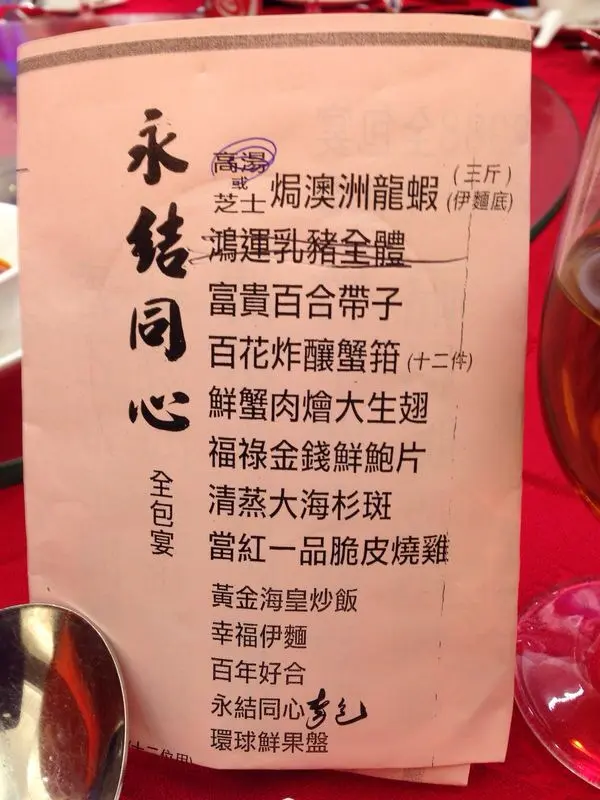 永結同心
全包宴
高湯
或
芝士
焗澳洲龍蝦 (三斤)
(伊麵底)
鴻運乳豬全體
富貴百合帶子
百花炸釀蟹箝 (十二件)
鮮蟹肉燴大生翅
福祿金錢鮮鮑片
清蒸大海杉斑
當紅一品脆皮燒雞
黃金海皇炒飯
幸福伊麵
百年好合
永結同心壽包
環球鮮果盤
(十二位用)